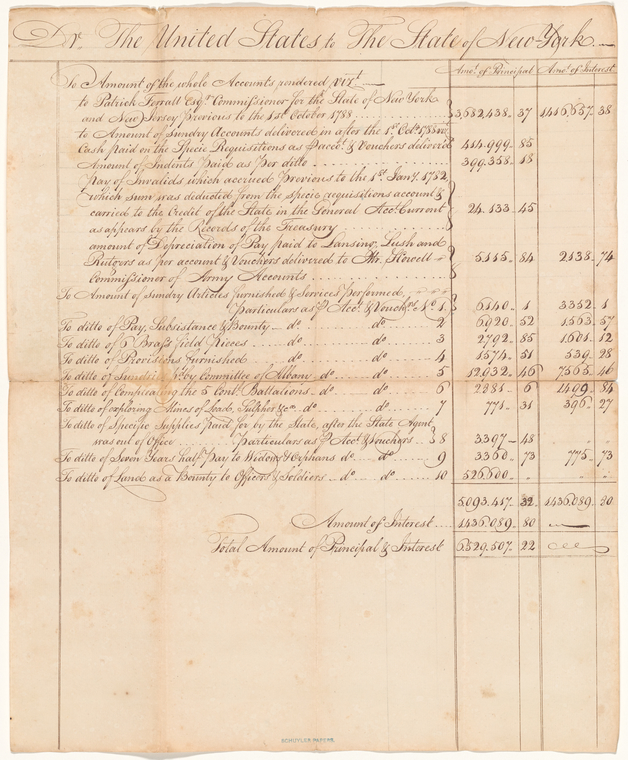 Dr. The United States to The State of New-York.
Amot. of Principal Amot. of Interest
To Amount of the whole Accounts rendered vizt.
to Patrick Ferrall Esqr. Commissioner for the State of New York
and New Jersey previous to the 1st October 1788 3,682,438.. 37 1416657.. 38
to Amount of Sundry Accounts delivered in after the 1st Octr. 1788
Cash paid on the Specie Requisitions as Accot. & Vouchers delivered 414.999.. 85
Amount of Indents Paid as Per ditto 399.358.. 18
Pay of Invalids which accrued Previous to the 1st Jany. 1782
which sum was deducted from the specie requisitions account &
carried to the Credit of the State in the General Accot. Current 24.133.. 45
as appears by the Records of the Treasury
amount of Depreciation of Pay paid to Lansing, Lush and
Rutgers as per account & Vouchers delivered to Mr. Howell 5.115.. 84 2138.. 74
Commissioner of Army Accounts
To Amount of Sundry Articles Furnished & Services performed,
Particulars as P Accot. & Vouchrs. No. 1. 6140.. 1 3352.. 1
To ditto of Pay, Subsistance & Bounty do. do. 2 6920.. 52 1563.. 57
To ditto of 6 Brass Field Pieces do. do. 3 2792.. 85 1601.. 12
To ditto of Provisions Furnished do. do. 4 1574.. 51 539.. 28
To ditto of Sundries by Committee of Albany do. do. 5 12,932.. 46 7565.. 46
To ditto of Compleating the 5 Contl. Battalions do. do. 6 2881.. 6 1409.. 84
To ditto of exploring Mines of Lead, Sulpher &ca. do. do. 7 771.. 31 396.. 27
To ditto of Specific Supplies paid for by the State, after the State Agent
was out of Office Particulars as P Accot. & Vouchers 8 3397.. 48
To ditto of Seven Years half Pay to Widows & Orphans do. do. 9 3360.. 73 775.. 73
To ditto of Land as a Bounty to Officers & Soldiers do. do. 10 526600..
5.093.417.. 32 1436.089.. 80
Amount of Interest 1436.089.. 80
Total Amount of Principal & Interest 6.529.507.. 22
SCHUYLER PAPERS.